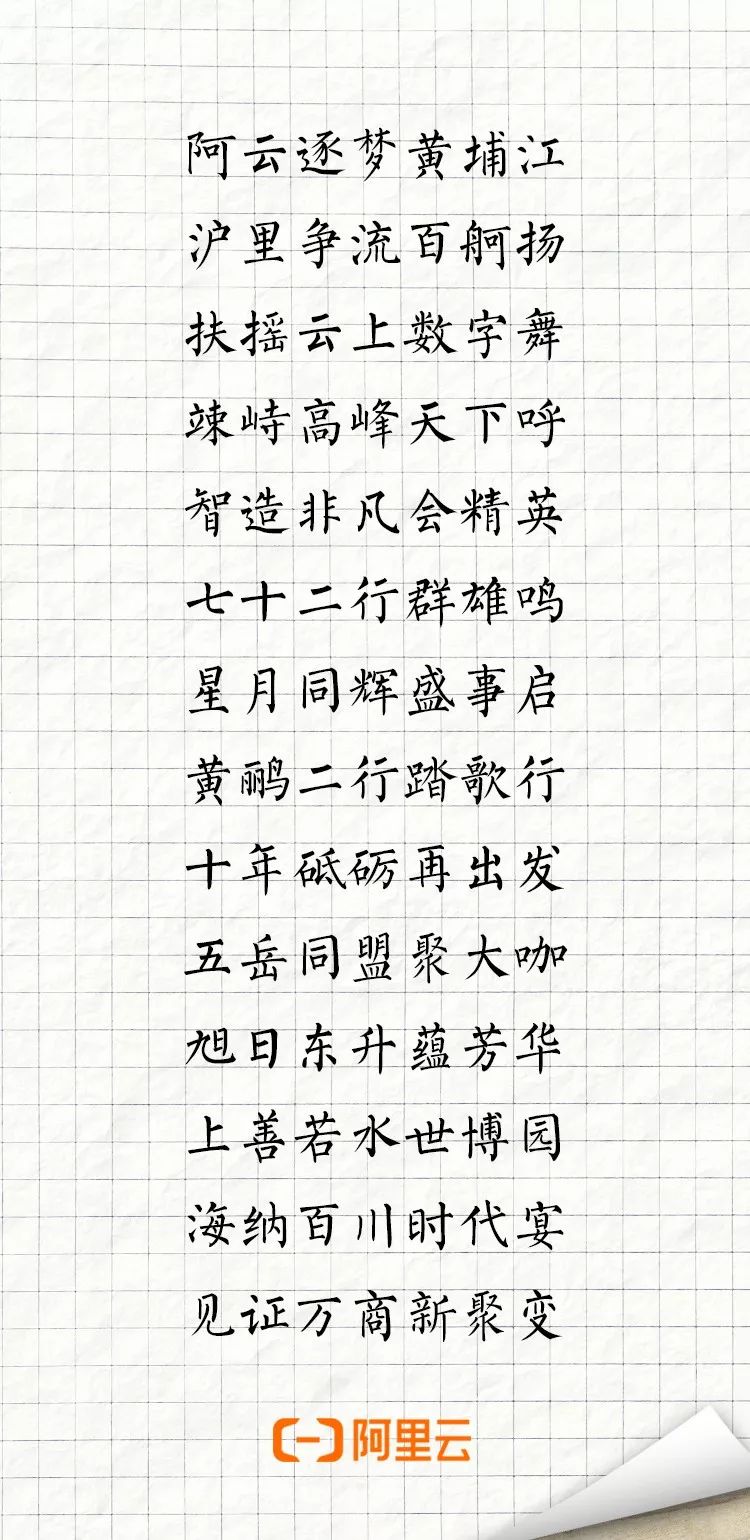 阿云逐梦黄埔江
沪里争流百舸扬
扶摇云上数字舞
竦峙高峰天下呼
智造非凡会精英
七十二行群雄鸣
星月同辉盛事启
黄鹂二行踏歌行
十年砥砺再出发
五岳同盟聚大咖
旭日东升蕴芳华
上善若水世博园
海纳百川时代宴
见证万商新聚变
阿里云